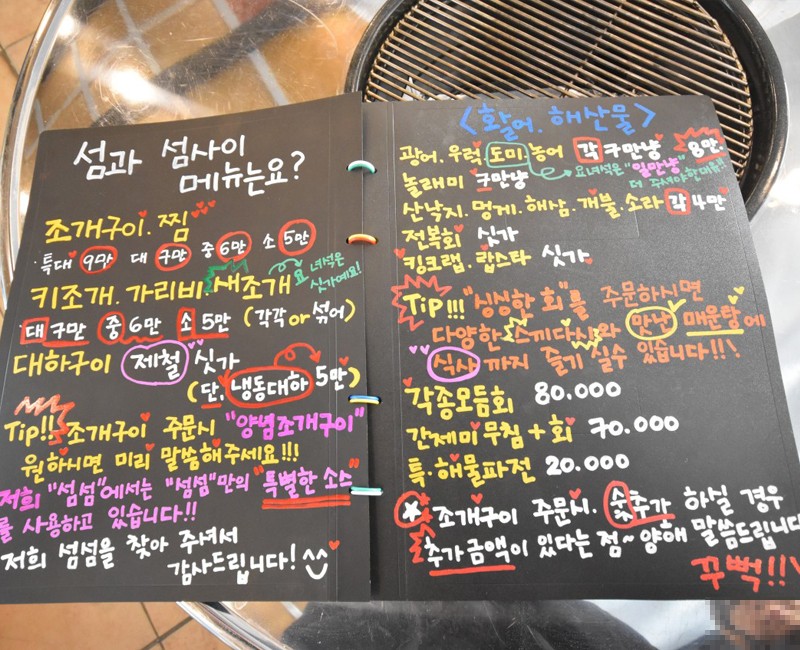 섬과 섬사이
메뉴는요?
조개구이.찜
특대 9만 대 7만 중 6만 소 5만
키조개.가리비.새조개 요 녀석은 싯가예요!
대 7만 중 6만 소 5만 (각각 or 섞어)
대하구이 제철 싯가
(단, 냉동대하 5만)
Tip!! 조개구이 주문시 "양념조개구이"
원하시면 미리 말씀해주세요!!!
저희 "섬섬"에서는 "섬섬"만의 "특별한 소스"
를 사용하고 있습니다!!
저희 섬섬을 찾아 주셔서
감사드립니다!
<활어.해산물>
광어.우럭.도미.농어 각 7만냥 8만.
놀래미 7만냥 요녀석은 "일만냥"
더 주셔야한대유~
산낙지.멍게.해삼.개불.소라 각 4만
전복회 싯가
킹크랩.랍스타 싯가
Tip!!! "싱싱한 회"를 주문하시면
다양한 스끼다시와 만난 매운탕에
식사까지 즐기실수 있습니다!!\
각종모듬회 80.000
간제미무침+회 70.000
특.해물파전 20.000
☆ 조개구이 주문시. 숯추가 하실 경우
추가금액이 있다는 점~ 양해 말씀드립니다
꾸벅!!\